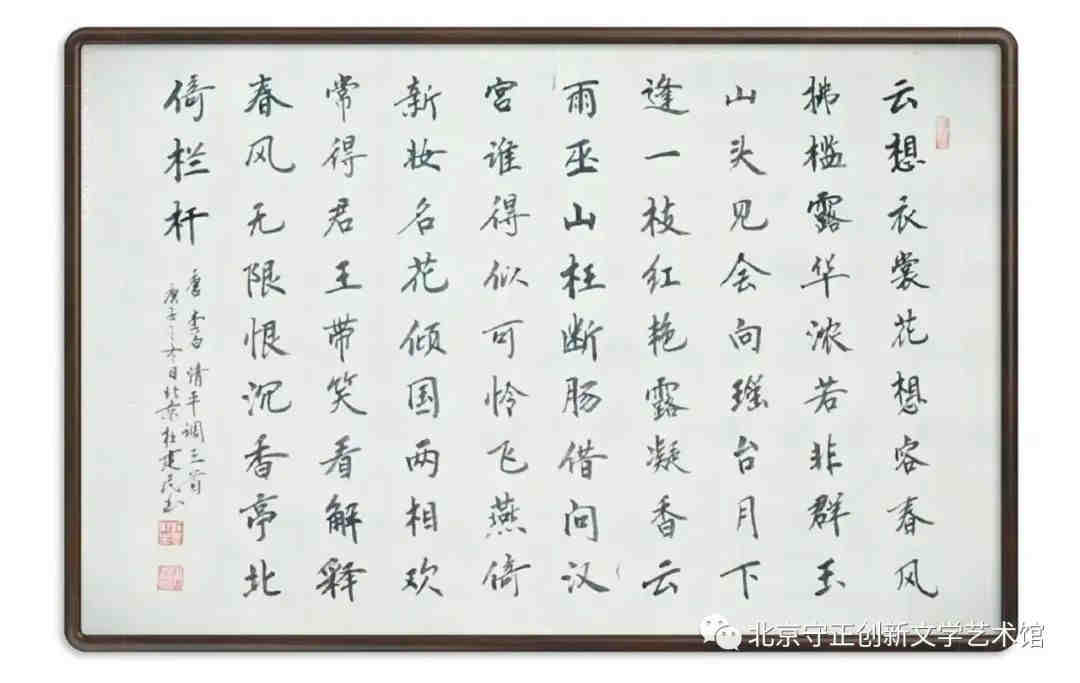 云想衣裳花想容春风
拂槛露华浓若非群玉
山头见会向瑶台月下
逢一枝红艳露凝香云
雨巫山枉断肠借问汉
宫谁得似可怜飞燕倚
新妆名花倾国两相欢
常得君王带笑看解释
春风无限恨沉香亭北
倚栏杆
唐李白清平调三首
庚子之冬日北京杜建民书
北京守正创新文学艺术馆